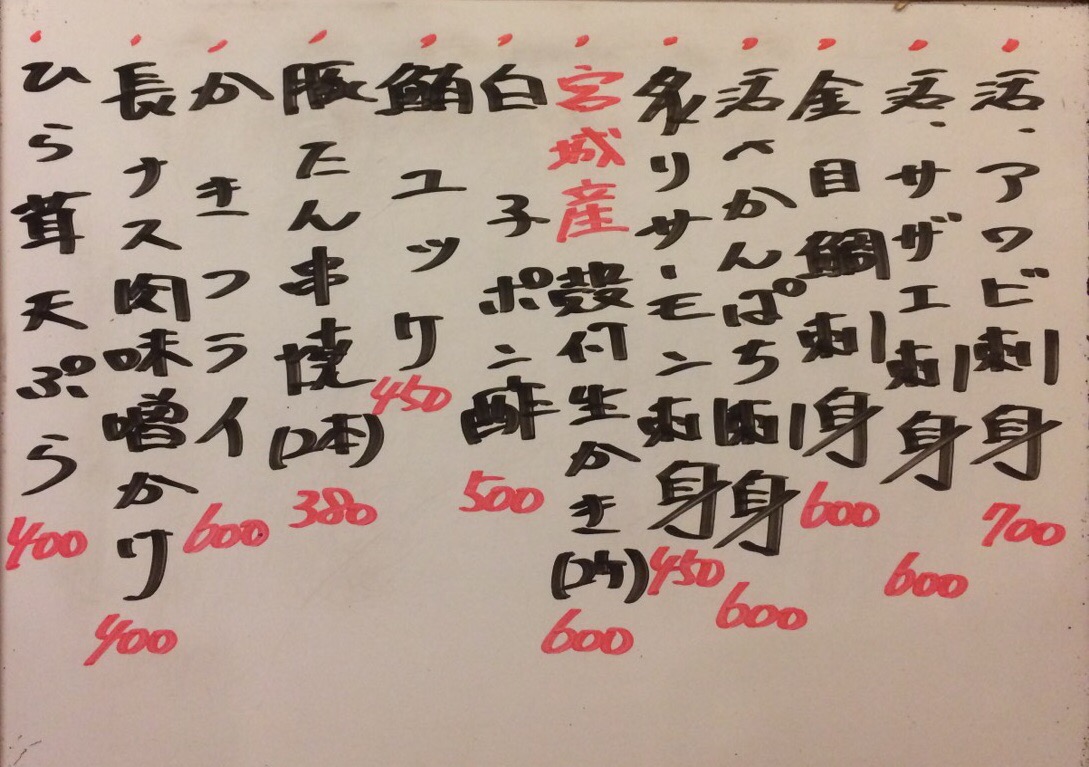 活、アワビ刺身 700
活、サザエ刺身 600
金目鯛刺身 600
活〆かんぱち刺身 600
炙りサーモン刺身 450
宮城産殻付生かき(2ケ) 600
白子ポン酢 500
鮪ユッケ 450
豚たん串焼(2本) 380
かきフライ 600
長ナス肉味噌かけ 400
ひら茸天ぷら 400